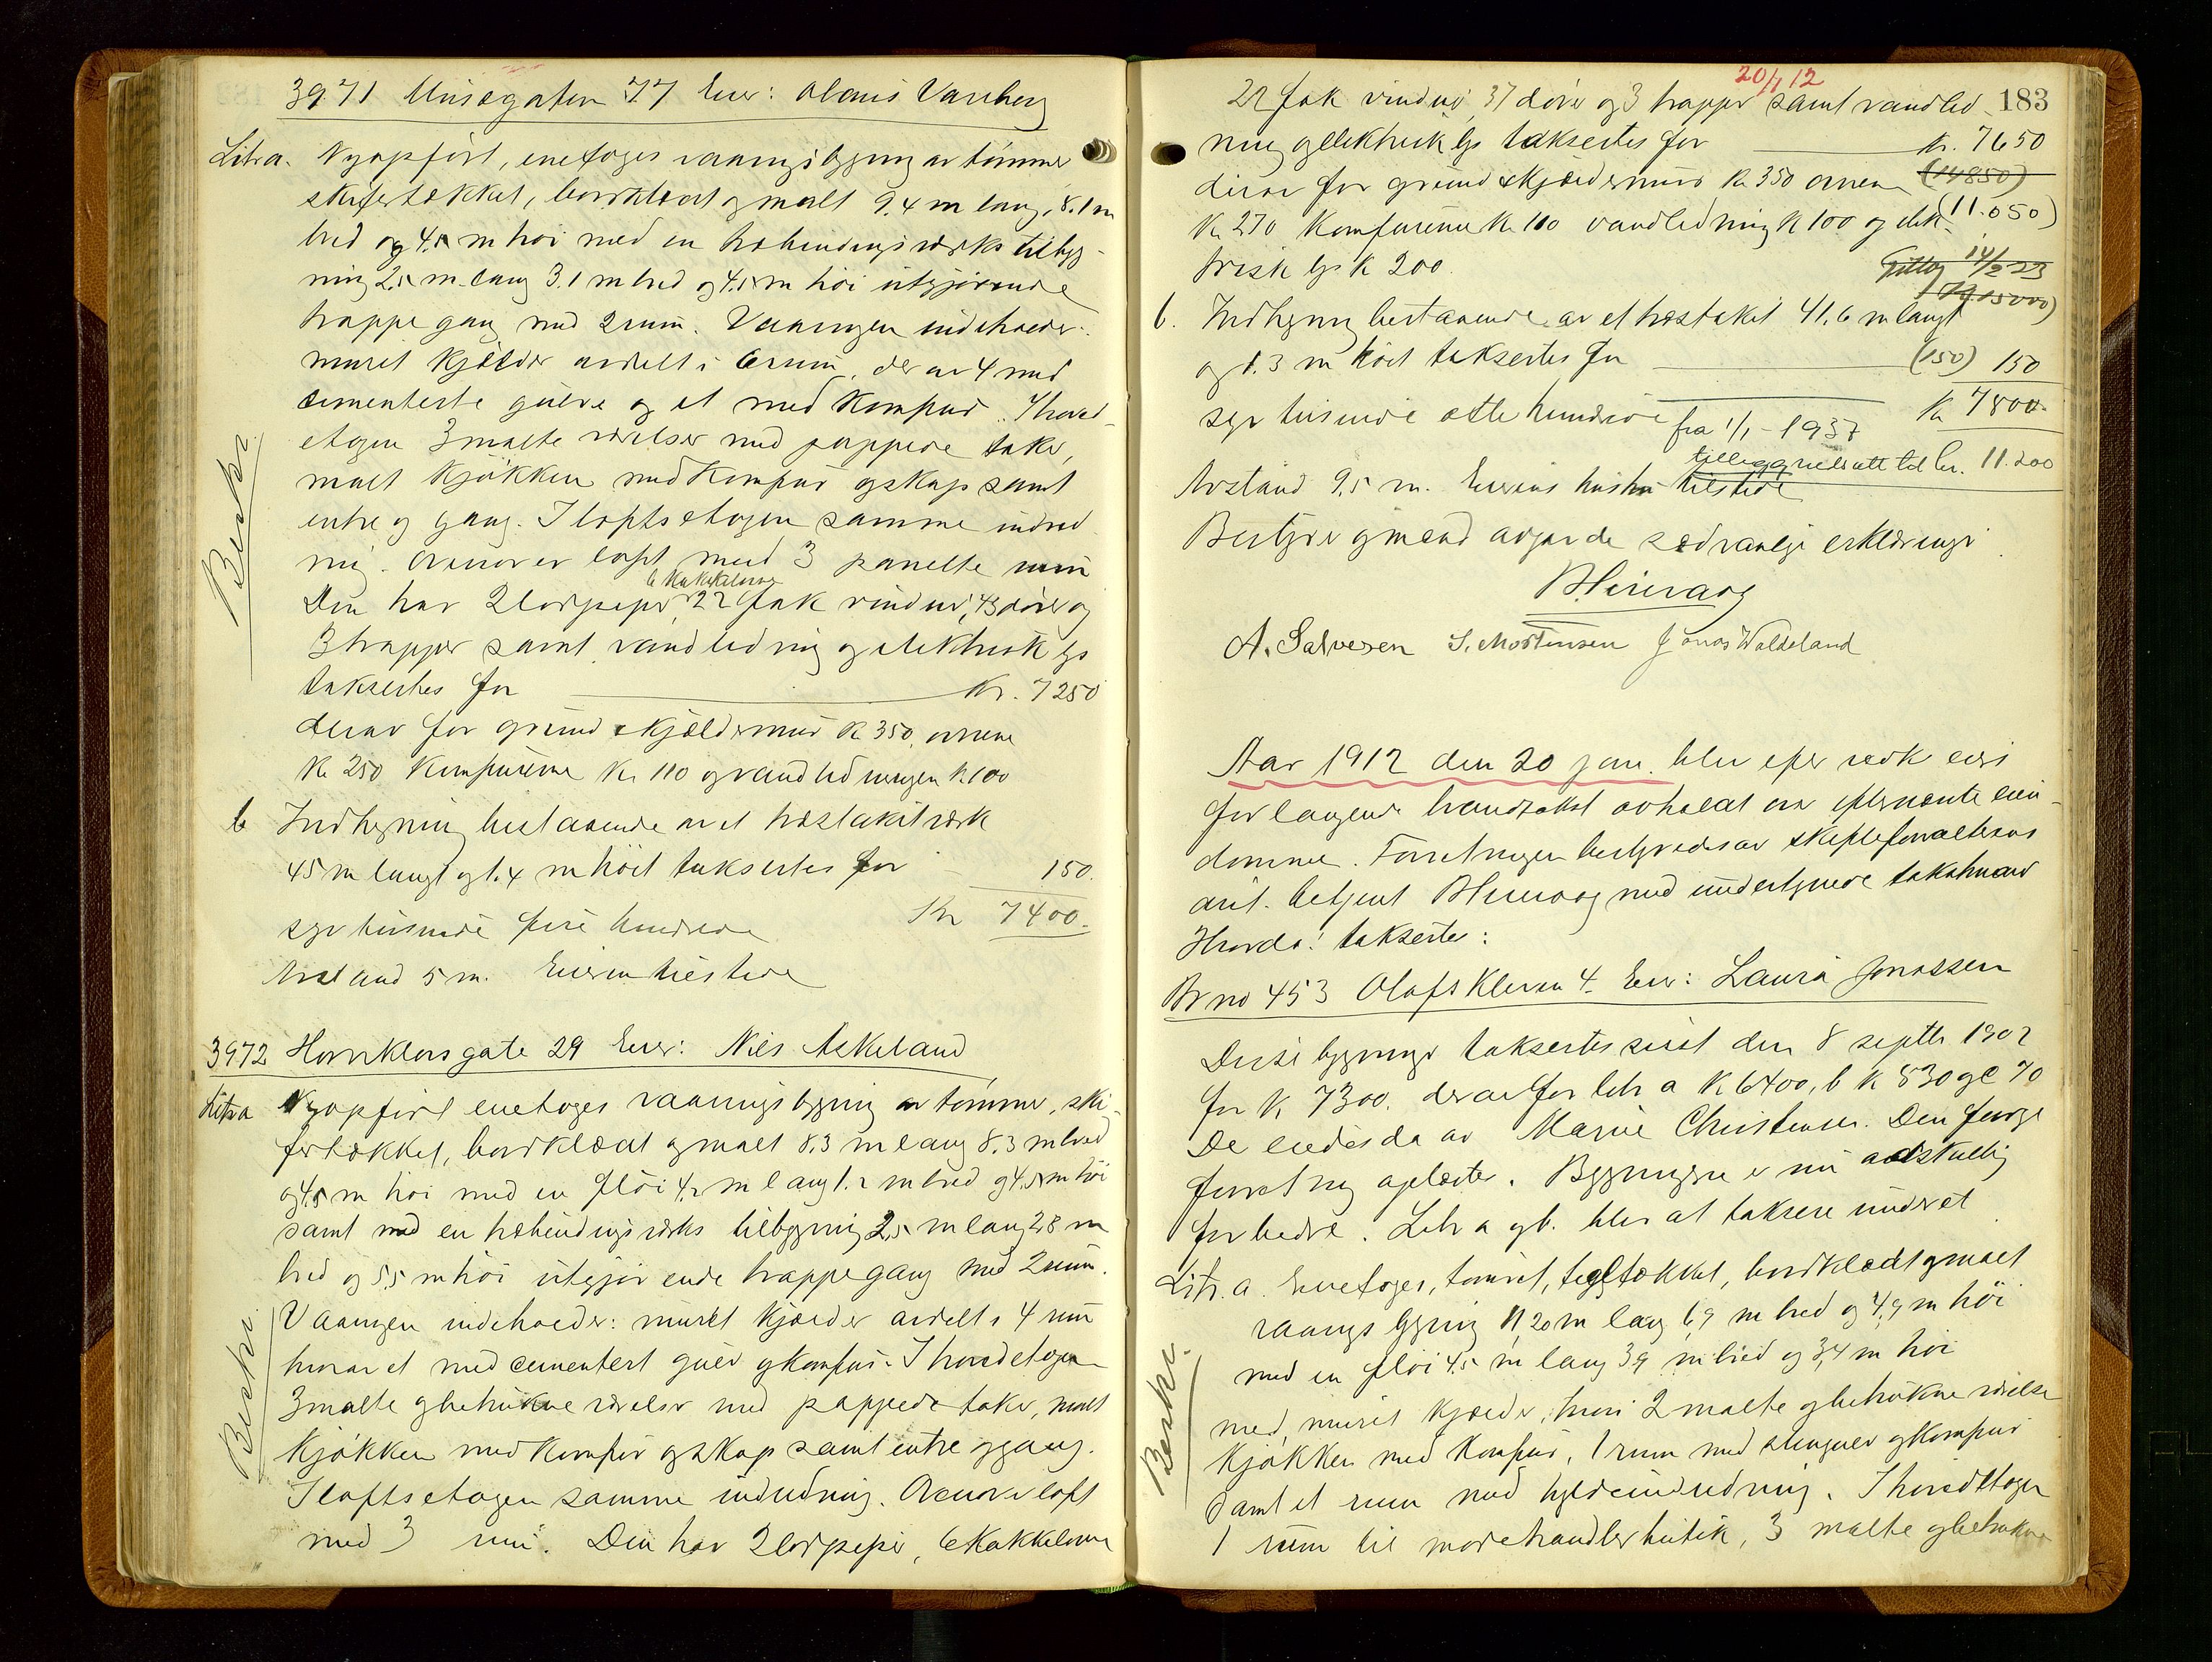 3971 Musegaten 77 Eier: Olaus Vareberg
Litr a. Nyopført, enetages vaaningsbygning av tømmer
skifertækket, bordklædt og malt 9.4 m lang, 8.1 m
bred og 4.5 m høi med en træbindingsværks tilbyg-
ning 2.5 m lang 3.1 m bred og 4.5 m høi utgjørende
trappegang med 2 rum. Vaaningen indeholder:
muret kjælder avdelt i 6 rum, derav 4 med
cementerte gulve og et med komfur. I hoved-
etagen 3 malte værelser med pappede taker,
malt kjøkken med komfur og skap samt
entre og gang. I loftsetagen samme indred-
ning. Ovenover loft med 3 panelte rum
6 kakkelovne
Den har 2 lødpiper, 22 fak vinduer, 43 dører og
3 trapper samt vandledning og elektrisk lys
taksertes for Kr. 7250
derav for grund & kjældermur kr 350, ovnene
Kr 250 Komfurene Kr 110 og vandledningen kr 100
b Indhegning bestaaende av et træstakitværk
45 m langt og 1.4 m høit taksertes for 150.
syv tusinde fire hundrede Kr 7400.
Avstand 5 m. Eieren tilstede
Beskr.
3972 Hornklovsgate 29 Eier: Nils Askeland
Litr a Nyopført enetages vaaningsbygning av tømmer, ski-
fertækket, bordklædt og malt 8.3 m lang 8.3 m bred
og 4.5 m høi med en fløi 4.2 m lang 1.2 m bred og 4.5 m høi
samt med en træbindingsværks tilbygning 2.5 m lang 2.8 m
bred og 5.5 m høi utgjørende trappegang med 2 rum.
Vaaningen indeholder: muret kjælder avdelt i 4 rum
hvorav et med cementert gulv og komfur. I hovedetagen
3 malte og betrukne værelser med pappede taker, malt
kjøkken med komfur og skap samt entre og gang.
I loftsetagen samme indredning. Ovenover loft
med 3 rum. Den har 2 lødpiper, 6 kakkelovne
Beskr.
20/1 12
183
22 fak vinduer, 37 dører og 3 trapper samt vandled-
ning og elektrisk lys taksertes for Kr. 7650
derav for grund & kjældermur kr 350 ovnene (14850)
Kr 270 Komfurene Kr 110 vandledning kr 100 og elek- (11.050)
trisk lys kr 200.
Tillæg 14/2 23
(15000)
b. Indhegning bestaaende av et træstakit 41.6 m langt
og 1.3 m høit taksertes for (150) 150
syv tusinde otte hundrede Kr 7800.
fra 1/1-1937
tillegg nedsatt til kr. 11.200
Avstand 9.5 m. Eierens hustru tilstede
Bestyrer og mænd avgav de sædvanlige erklæringer.
A. Salvesen S. Mortensen Jonas Waldeland
Aar 1912 den 20 jan. blev efter vedk eiers
forlangende brandtakst avholdt over efternævnte eien-
domme. Forretningen bestyredes av skifteforvalterens
aut. betjent med undertegnede takstmænd
Hvorda: taksertes:
Br no 453 Olafskleven 4. Eier: Laura Jonassen
Disse bygninger taksertes sidst den 8 septbr 1902
for kr 7300. derav for litr a kr 6400, b kr 830 og c 70
De eiedes da av Marie Christensen. Den forrige
forretning oplæstes. Bygningerne er nu adskillig
forbedret. Litr a og b. blev at taksere under et
Litr. a. Enetages, tømret, tegltækket, bordklædt og malt
vaaningsbygning 11,20 m lang 6,9 m bred og 4,9 m høi
med en fløi 4.5 m lang 3,9 m bred og 3,4 m høi
med muret kjælder, hvori 2 malte og betrukne værelser
kjøkken med komfur, 1 rum med stengulv og komfur
samt et rum med hyldeindredning. I hovedetagen
1 rum til motehandlerbutik, 3 malte og betrukne
Beskr.